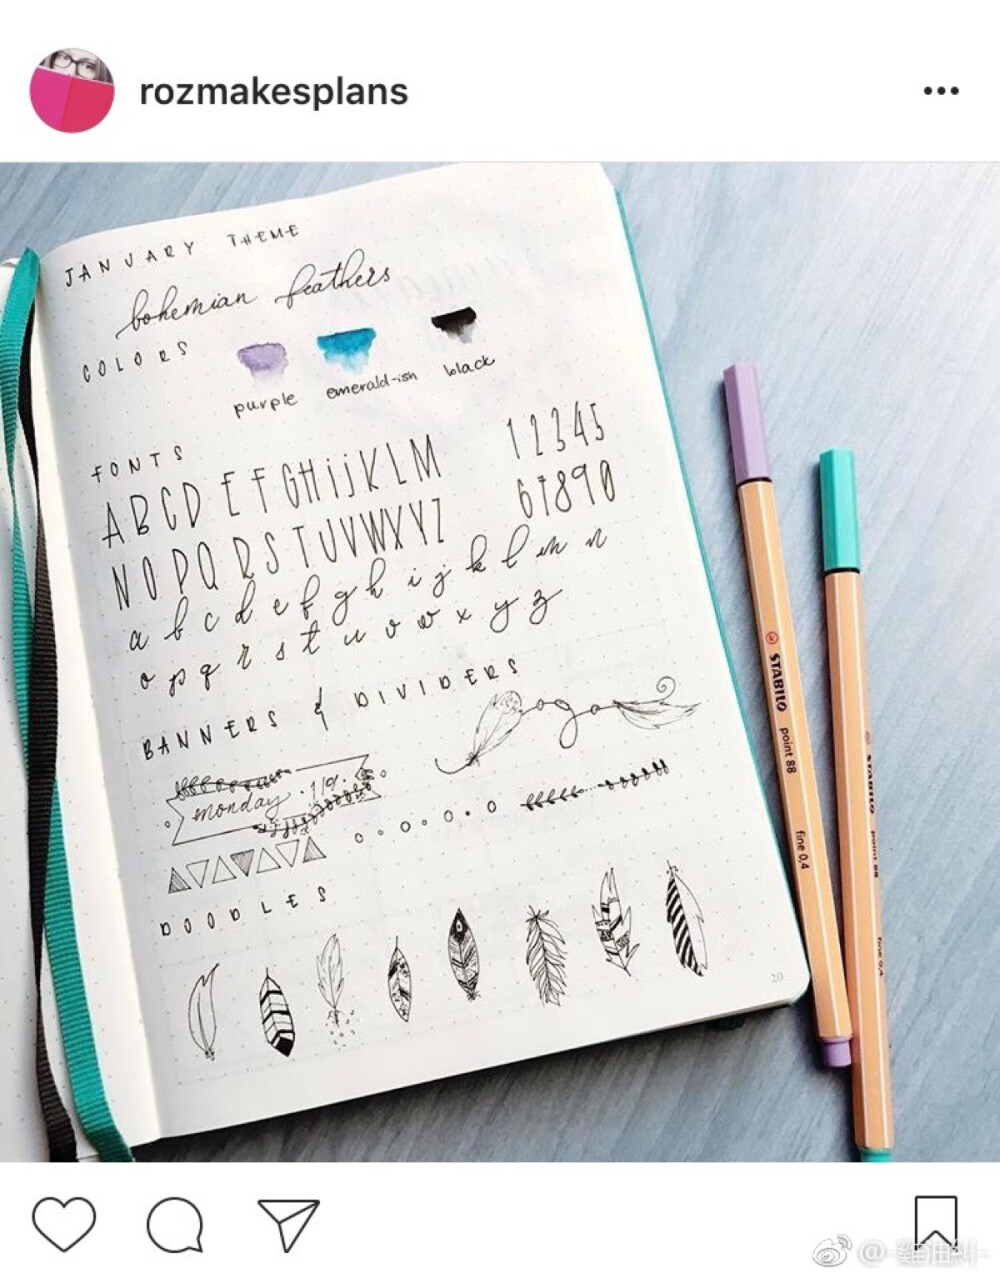 rozmakesplans
JANUARY THEME
bohemian feathers
COLORS
purple emerald-ish black
FONTS
ABCDEFGHijKLM 12345
NOPQRSTUVWXYZ 67890
a b c d e f g h i j k l m n
o p q r s t u v w x y z
BANNERS & DIVIDERS
monday. 1/9.
DOODLES
20
STABILO point 88 fine 0,4
STABILO point 88 fine 0,4
@-雞油糾-